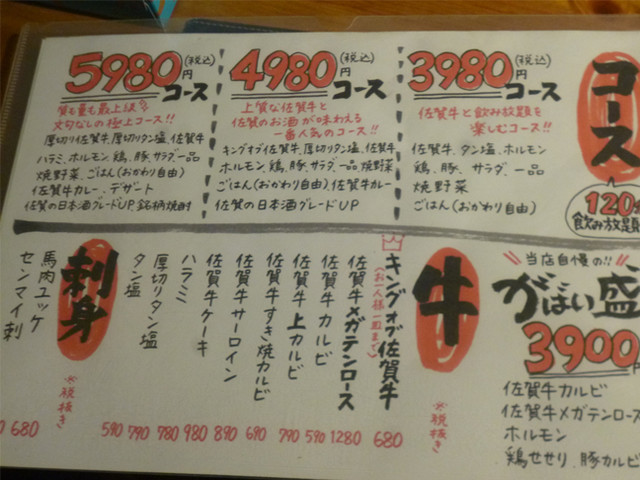 5980円(税込)コース
質も量も最上級!!
文句なしの極上コース!!
厚切り佐賀牛、厚切りタン塩、佐賀牛
ハラミ、ホルモン、鶏、豚、サラダ、一品
焼野菜、ごはん(おかわり自由)
佐賀牛カレー、デザート
佐賀の日本酒グレードUP、銘柄焼酎
4980円(税込)コース
上質な佐賀牛と
佐賀のお酒が味わえる
一番人気のコース!!
キングオブ佐賀牛、佐賀牛、タン塩
ホルモン、鶏、豚、サラダ、一品、焼野菜
ごはん(おかわり自由)佐賀牛カレー
佐賀の日本酒グレードUP
3980円(税込)コース
佐賀牛と飲み放題を
楽しむコース!!
佐賀牛、タン塩、ホルモン
鶏、豚、サラダ、一品
焼野菜
ごはん(おかわり自由)
コース
120
飲み放題
当店自慢の!!
がばい盛
3900
佐賀牛カルビ
佐賀牛メガテンロース
ホルモン
鶏せせり、豚カルビ
牛
※税抜き
キングオブ佐賀牛
(お一人様一皿まで)
680
佐賀牛メガテンロース
1280
佐賀牛カルビ
590
佐賀牛上カルビ
790
佐賀牛すき焼カルビ
690
佐賀牛サーロイン
890
佐賀牛ケーキ
980
ハラミ
780
厚切りタン塩
790
タン塩
590
刺身
※税抜き
馬肉ユッケ
680
センマイ刺